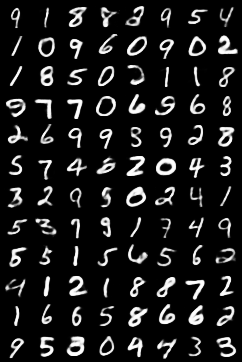 9 1 8 8 2 9 5 4
1 0 9 6 0 9 0 2
1 8 5 0 2 1 1 8
9 7 7 0 6 9 6 8
2 6 9 9 3 9 2 8
5 7 4 8 2 0 4 3
3 2 9 5 0 2 4 1
5 3 9 9 1 7 4 9
5 5 1 5 6 5 6 2
4 1 2 1 8 8 7 2
1 6 6 5 8 6 6 2
9 5 3 0 9 4 3 3